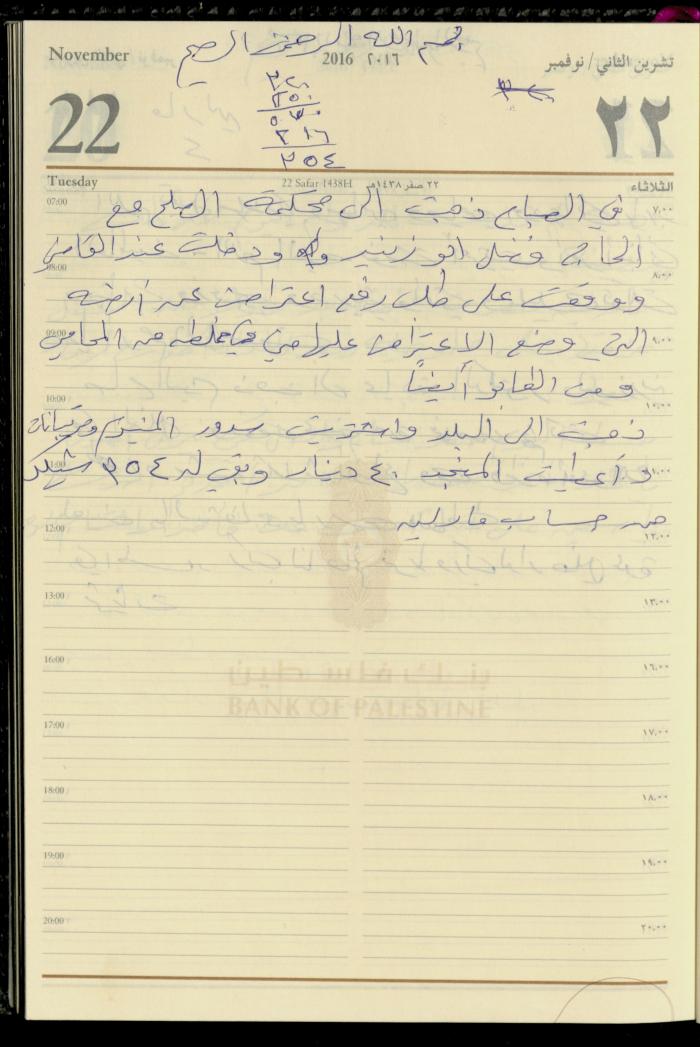 بسم الله الرحمن الرحيم
November 2016 ٢٠١٦ تشرين الثاني / نوفمبر
22 ٢٢
٣٢٠
٢٥٠
٥٧٠
٢١٦
٣٥٤
Tuesday 22 Safar 1438H ٢٢ صفر ١٤٣٨هـ الثلاثاء
07:00 ٧:٠٠
في الصباح ذهبت الى محكمة الصلح مع
الحاج فضل ابو زنيد ودخلت عند القاضي
08:00 ٨:٠٠
ووقعت على طلب رفع اعتراض عن ارضه
التي وضع الاعتراض عليها من المحامي
09:00 ٩:٠٠
ومن الطابو أيضاً
10:00 ١٠:٠٠
ذهبت الى البلد واشتريت سدور
11:00 ١١:٠٠
وأعطيت المنجد ٤٠ دينار وبقي له ٣٥٤ شيكل
من حساب
12:00 ١٢:٠٠
13:00 ١٣:٠٠
16:00 ١٦:٠٠
بنك فلسطين
BANK OF PALESTINE
17:00 ١٧:٠٠
18:00 ١٨:٠٠
19:00 ١٩:٠٠
20:00 ٢٠:٠٠